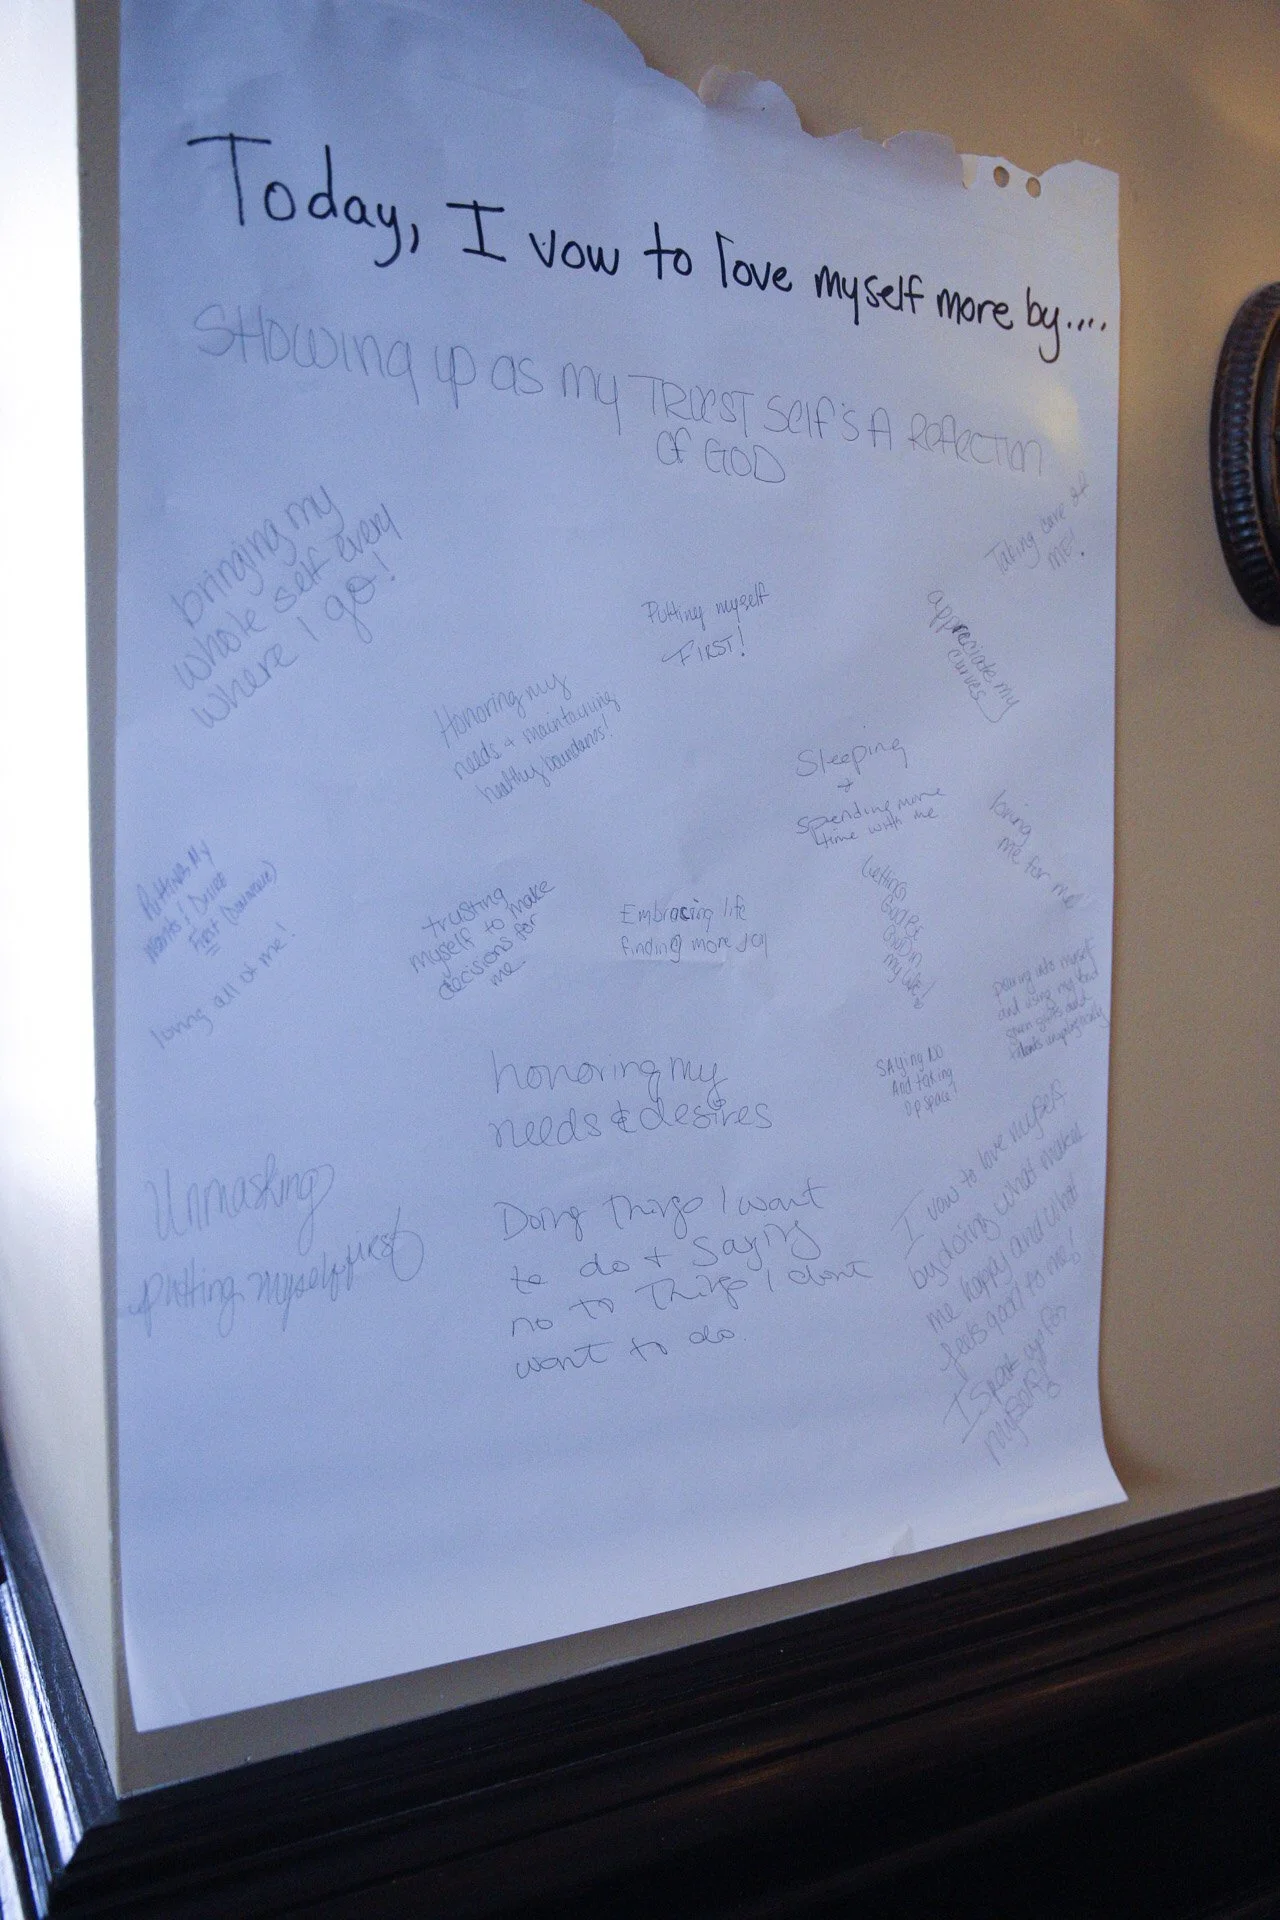 Today, I vow to love myself more by....
SHOWING up as my TRUEST Self's A Reflection
of GOD
bringing my
whole self every
where I go!
Taking care of
ME!
Putting myself
FIRST!
appreciate my
curves
Honoring my
needs + maintaining
healthy boundaries!
Sleeping
+
Spending more
time with me
loving
me for me
Putting My
Wants & Desires
First
loving all of me!
trusting
myself to make
decisions for
me
Embracing life
finding more joy
Letting
God Be
God in
my life!
pouring into myself
and using my God
given gifts and
talents unapologetically
SAYING NO
And taking
up space!
honoring my
needs & desires
Unmasking
putting myself first
Doing things I want
to do + saying
no to things I dont
want to do.
I vow to love myself
by doing what makes
me happy and what
feels good to me!
I speak up for
myself!